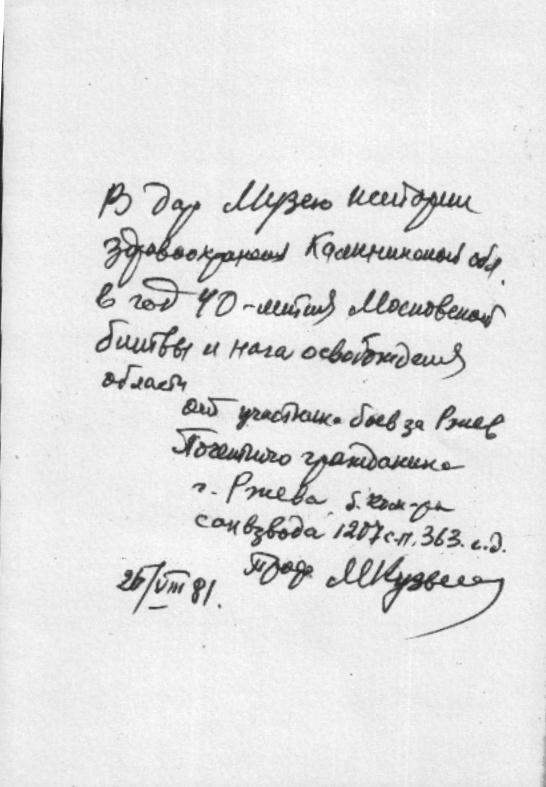 В дар Музею истории
здравоохранения Калининской обл.
в год 40-летия Московской
битвы и начала освобождения
области
от участника боев за Ржев
Почетного гражданина
г. Ржева б. ком-ра
санвзвода 1207 с.п. 363. с.д.
проф. МКузьмин
26/VIII 81.